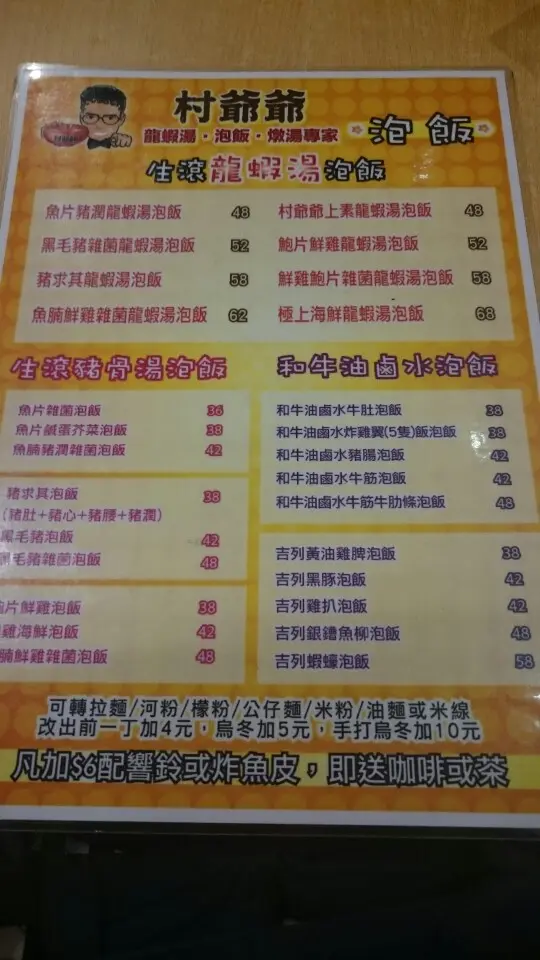 村爺爺
龍蝦湯・泡飯・燉湯專家
泡飯
生滾龍蝦湯泡飯
魚片豬潤龍蝦湯泡飯 48
黑毛豬雜菌龍蝦湯泡飯 52
豬求其龍蝦湯泡飯 58
魚腩鮮雞雜菌龍蝦湯泡飯 62
村爺爺上素龍蝦湯泡飯 48
鮑片鮮雞龍蝦湯泡飯 52
鮮雞鮑片雜菌龍蝦湯泡飯 58
極上海鮮龍蝦湯泡飯 68
生滾豬骨湯泡飯
魚片雜菌泡飯 36
魚片鹹蛋芥菜泡飯 38
魚腩豬潤雜菌泡飯 42
豬求其泡飯 38
(豬肚+豬心+豬腰+豬潤)
黑毛豬泡飯 42
黑毛豬雜菌泡飯 48
片鮮雞泡飯 38
雞海鮮泡飯 42
腩鮮雞雜菌泡飯 48
和牛油鹵水泡飯
和牛油鹵水牛肚泡飯 38
和牛油鹵水炸雞翼(5隻)飯泡飯 38
和牛油鹵水豬腸泡飯 42
和牛油鹵水牛筋泡飯 42
和牛油鹵水牛筋牛肋條泡飯 48
吉列黃油雞脾泡飯 38
吉列黑豚泡飯 42
吉列雞扒泡飯 42
吉列銀鱈魚柳泡飯 48
吉列蝦蠔泡飯 58
可轉拉麵/河粉/檬粉/公仔麵/米粉/油麵或米線
改出前一丁加4元，烏冬加5元，手打烏冬加10元
凡加$6配響鈴或炸魚皮，即送咖啡或茶